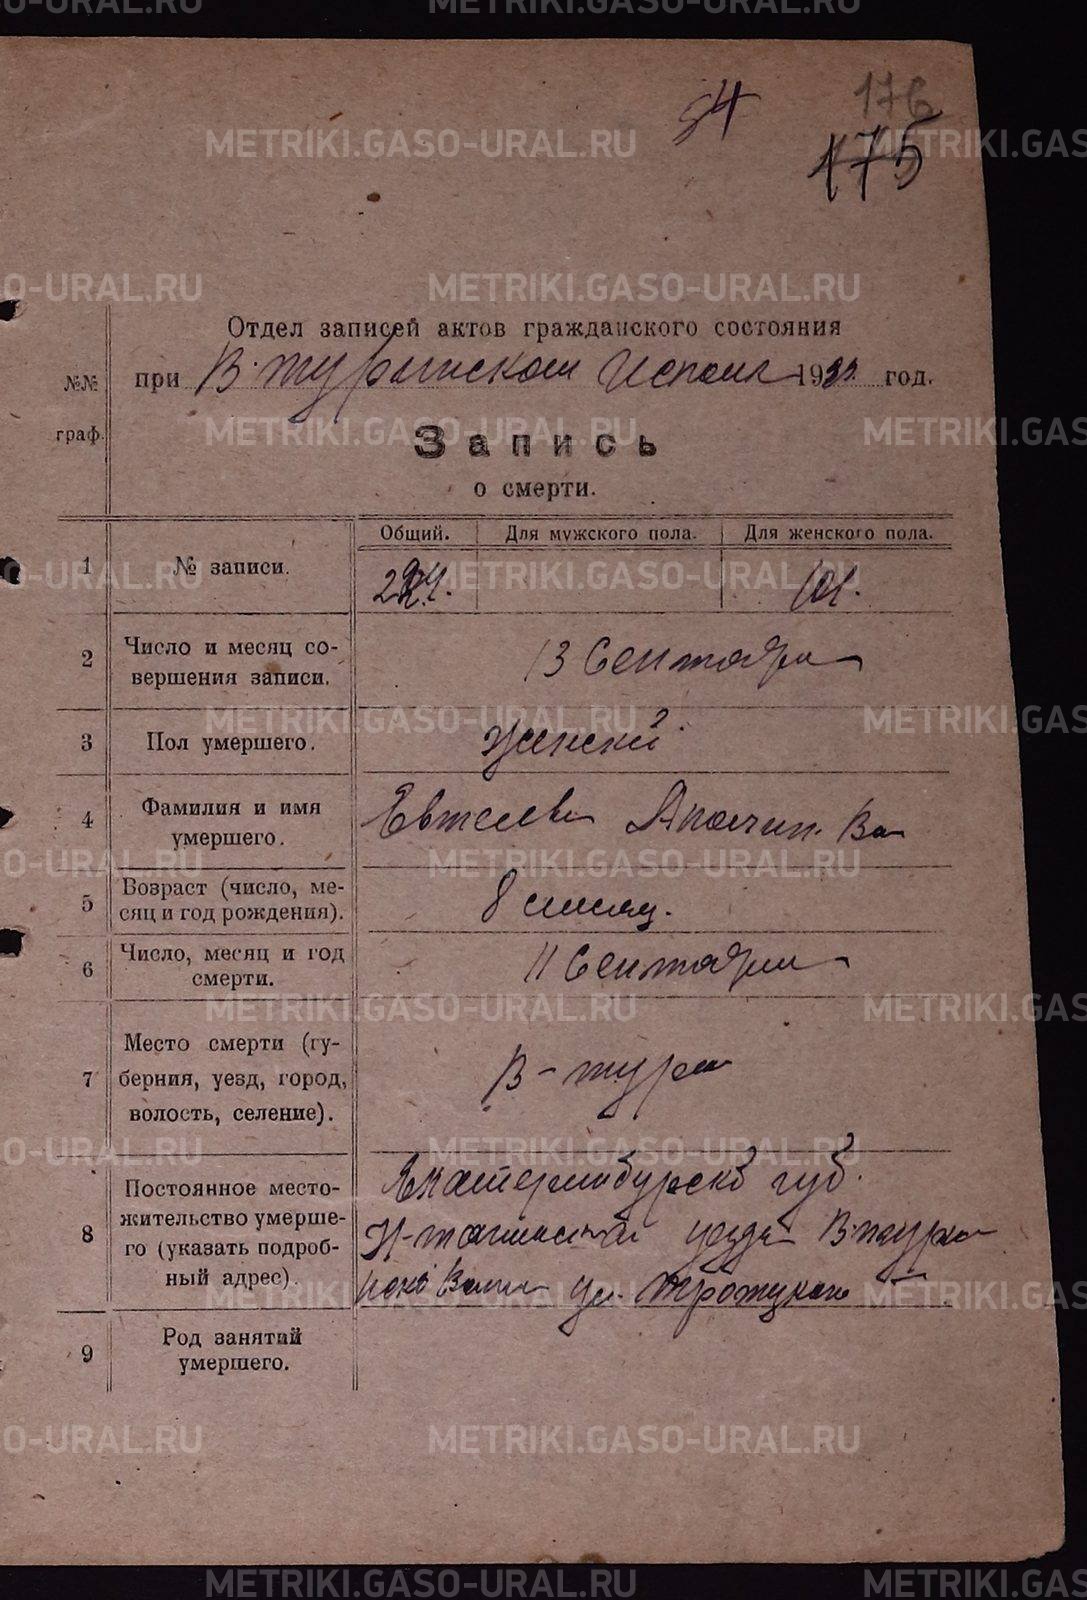 54
176
175
Отдел записей актов гражданского состояния
при В. Туринском Исполк 192 год.
№№ граф.
Запись
о смерти.
Общий. Для мужского пола. Для женского пола.
1 № записи. 101.
2 Число и месяц со-
вершения записи. 13 Сентября
3 Пол умершего. Женский
4 Фамилия и имя
умершего.
5 Возраст (число, ме-
сяц и год рождения). 8 месяц.
6 Число, месяц и год
смерти. 11 Сентября
7 Место смерти (гу-
берния, уезд, город,
волость, селение). В-Тура
8 Постоянное место-
жительство умерше-
го (указать подроб-
ный адрес).
Екатеринбурско губ.
Н-Тагильской уезда В-Турин
ско Волси ул. Троцкаго
9 Род занятий
умершего.
METRIKI.GASO-URAL.RU